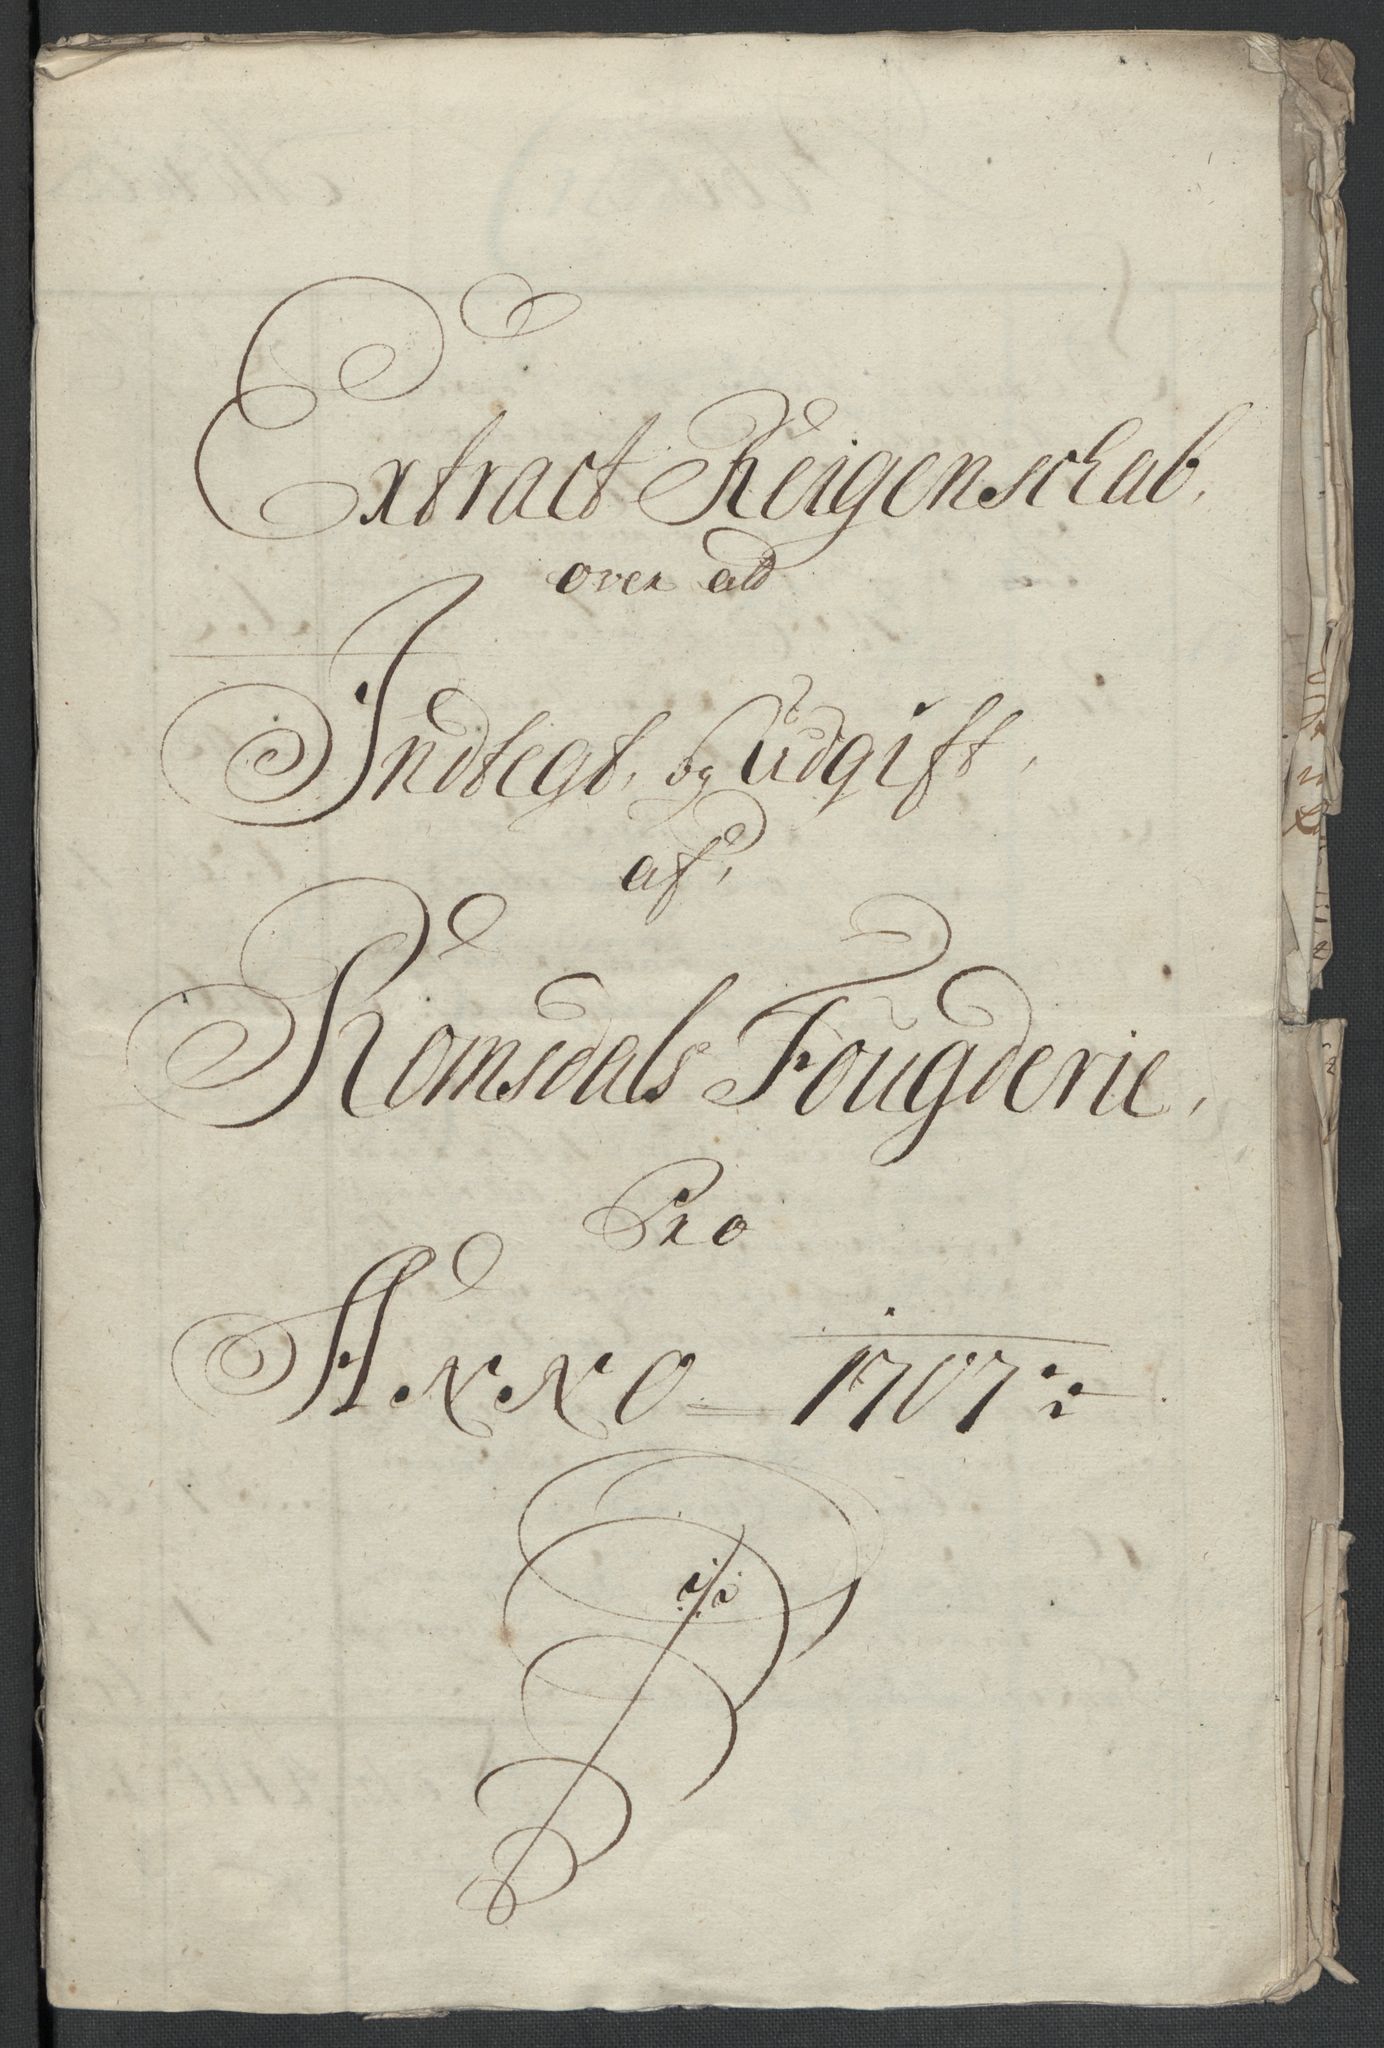 Extract Reigenschab,
over ald
Indtegt, og Udgift,
af,
Romsdals Fougderie,
Pro
ANNO 1707